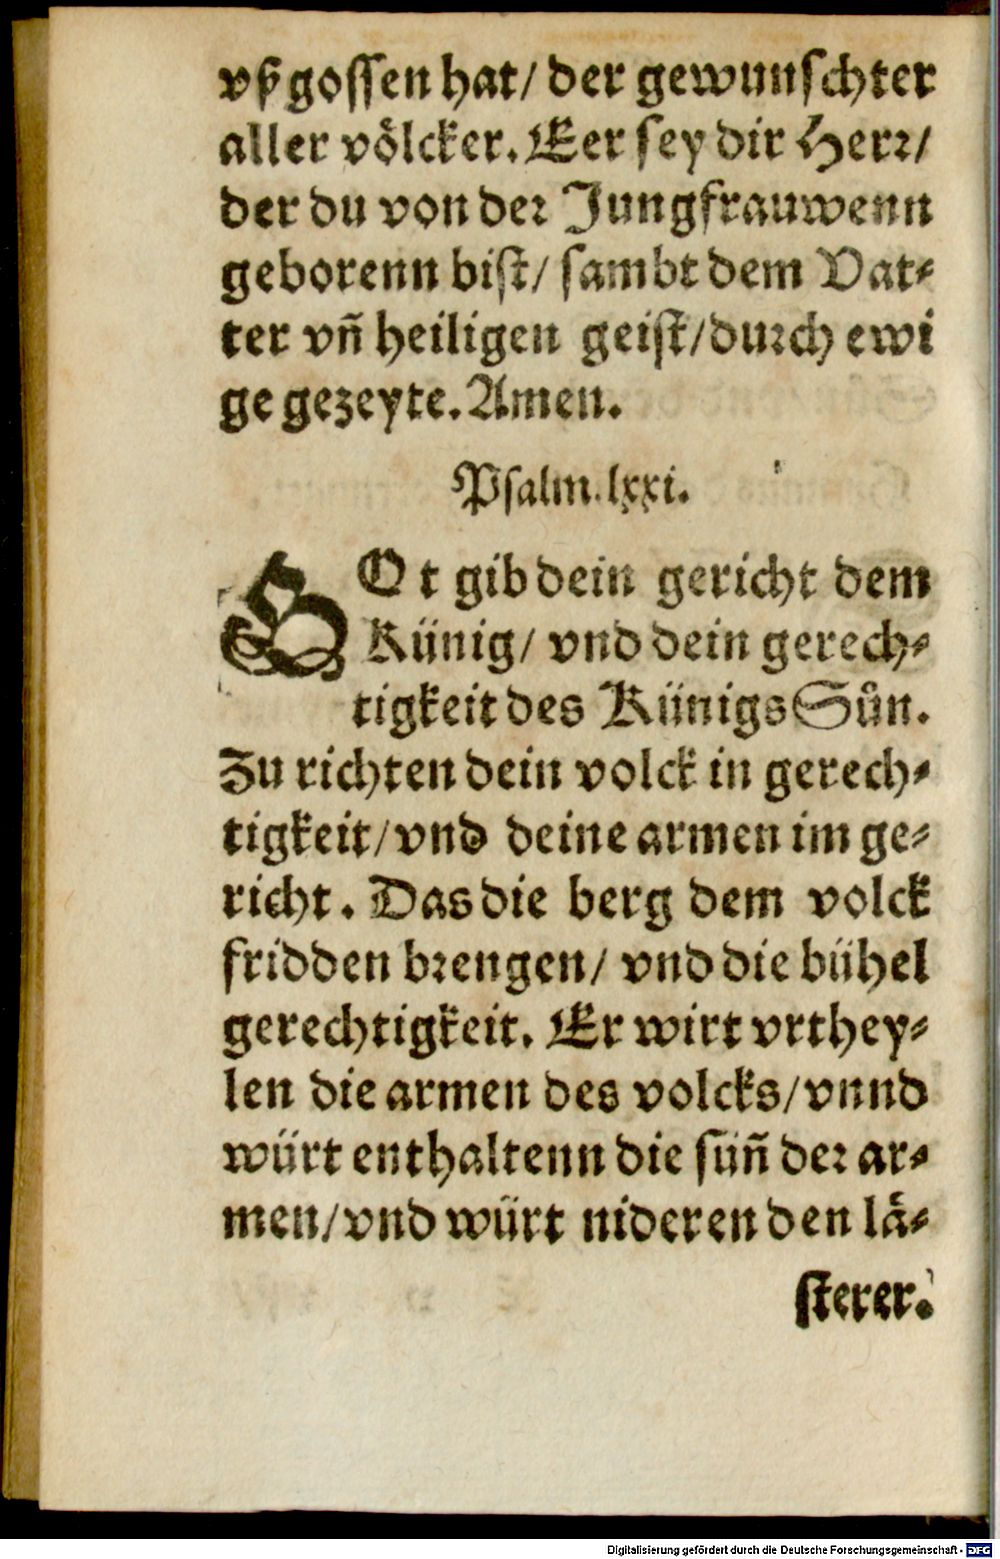 vßgossen hat/ der gewunschter
aller völcker. Eer sey dir Herr/
der du von der Jungfrauwenn
geborenn bist/ sambt dem Vat⸗
ter vñ heiligen geist/durch ewi
ge gezeyte. Amen.
Psalm. lxxi.
GOt gib dein gericht dem
Künig/ vnd dein gerech⸗
tigkeit des Künigs Sůn.
Zu richten dein volck in gerech⸗
tigkeit/ vnd deine armen im ge⸗
richt. Das die berg dem volck
fridden brengen/ vnd die bühel
gerechtigkeit. Er wirt vrthey⸗
len die armen des volcks/vnnd
würt enthaltenn die süñ der ar⸗
men/vnd würt nideren den lä⸗
sterer.
Digitalisierung gefördert durch die Deutsche Forschungsgemeinschaft - DFG